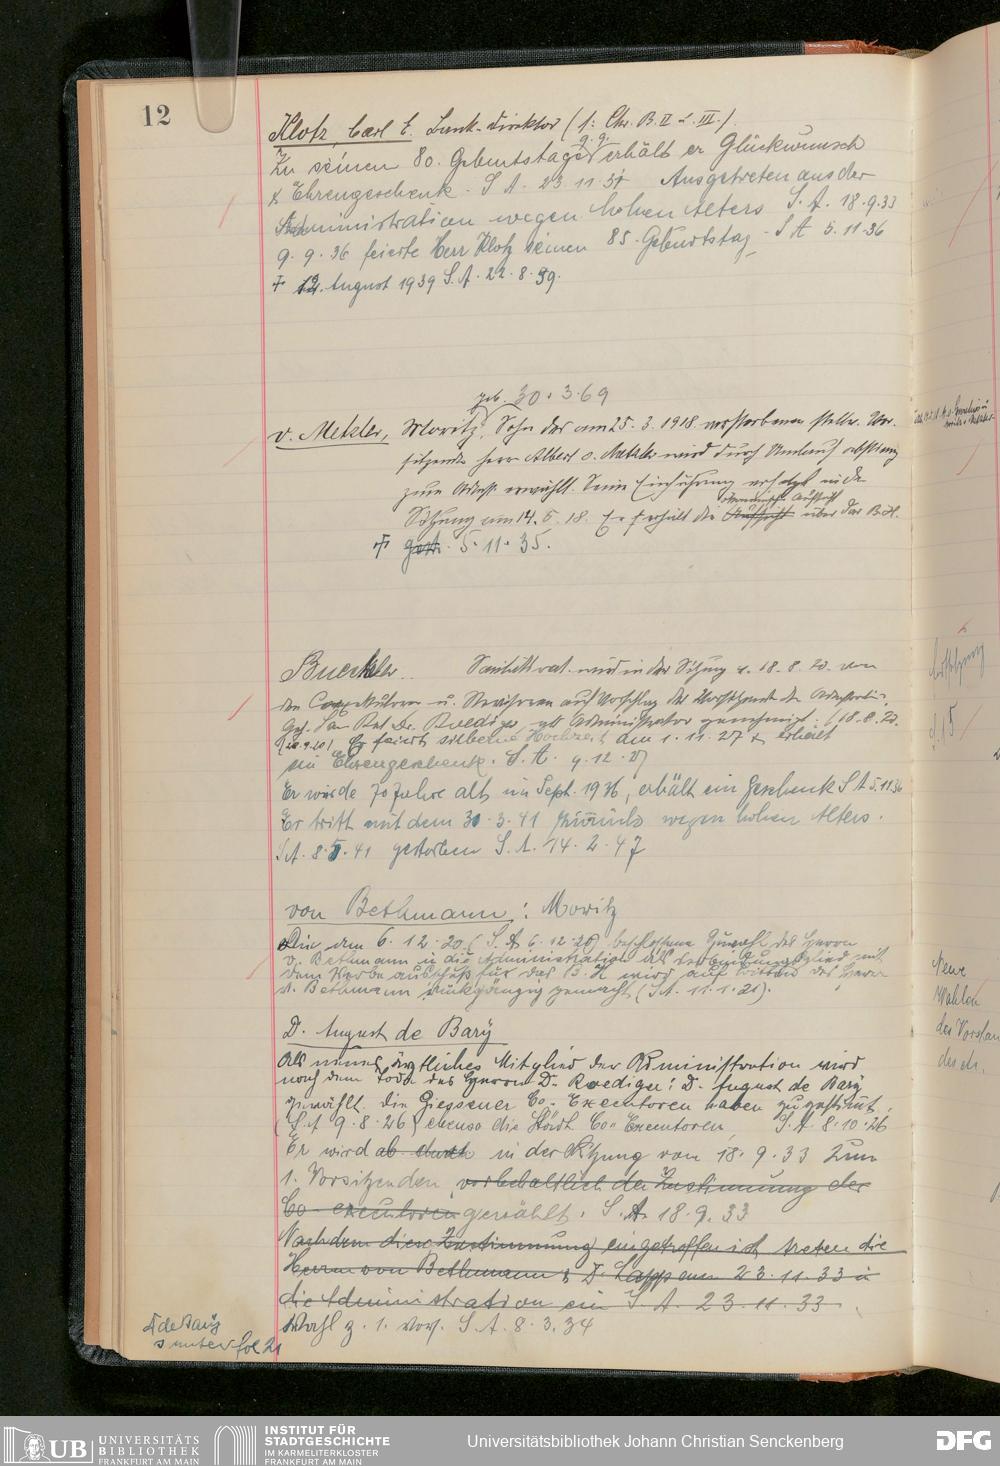 12
Klotz, Carl E. Bank-Direktor (1. Chr. B. II S. III.)
g. g.
Zu seinem 80. Geburtstage erhält er Glückwunsch
& Ehrengeschenk. S A. 23.11.31 Ausgetreten aus der
Administration wegen hohen Alters S. A. 18.9.33
9. 9. 36 feierte Herr Klotz seinen 85. Geburtstag - S A 5.11.36
† 12. August 1939 S. A. 22.8.39.
geb. 30.3.69
v. Metzler, Moritz, Sohn des am 25.3.1918 verstorbenen stellv. Vor-
sitzenden Herrn Albert v. Metzler wird durch Umlauf
zum gewählt. Seine Einführung erfolgt in der
Aufsicht
Sitzung am 14.5.18. Er erhält die Aufsicht über das B.H.
† gest. 5.11.35.
Buerkle Sanitätsrat wird in der Sitzung v. 18.8.20 von
den u. Revisoren auf Vorschlag des
Geh. San Rat Dr. Roediger als Administrator genehmigt. (18.8.20.
Er feiert silberne Hochzeit den 1.11.27 & erhält
ein Ehrengeschenk. S. A. 9.12.27
Er wurde 70 Jahre alt im Sept. 1936, erhält ein Geschenk S A 5.11.36
Er tritt mit dem 31.3.41 zurück wegen hohen Alters.
S A. 8.5.41 gestorben S. A. 14.2.47
von Bethmann: Moritz
Die am 6.12.20 (S. A 6.12.20) beschlossene Zuwahl des Herrn
v. Bethmann in die Administration als Verbindungsglied mit
dem Werbeausschuß für das B. H wird auf Bitten des Herrn
v. Bethmann rückgängig gemacht (S A. 11.1.21).
D. August de Bary
Als neues ärztliches Mitglied der Administration wird
nach dem Tode des Herrn D. Roediger: D. August de Bary
gewählt. Die Giessener Co-Executoren haben zugestimmt.
(S. A 9.8.26) ebenso die Städt. Co-Executoren, S. A. 8.10.26
Er wird ab durch in der Sitzung vom 18.9.33 zum
1. Vorsitzenden, vorbehaltlich der Zustimmung der
Co-executoren gewählt. S. A. 18.9.33
Nachdem diese Zustimmung eingetroffen ist treten die
Herrn von Bethmann & D. Lapp am 23.11.33 in
die Administration ein S A. 23.11.33
Wahl z. 1. Vors. S. A. 8.3.34
A de Bary
s unter fol 21
Neue
Wahlen
des Vorstan
des
UB UNIVERSITÄTS
BIBLIOTHEK
FRANKFURT AM MAIN
INSTITUT FÜR
STADTGESCHICHTE
IM KARMELITERKLOSTER
FRANKFURT AM MAIN
Universitätsbibliothek Johann Christian Senckenberg
DFG